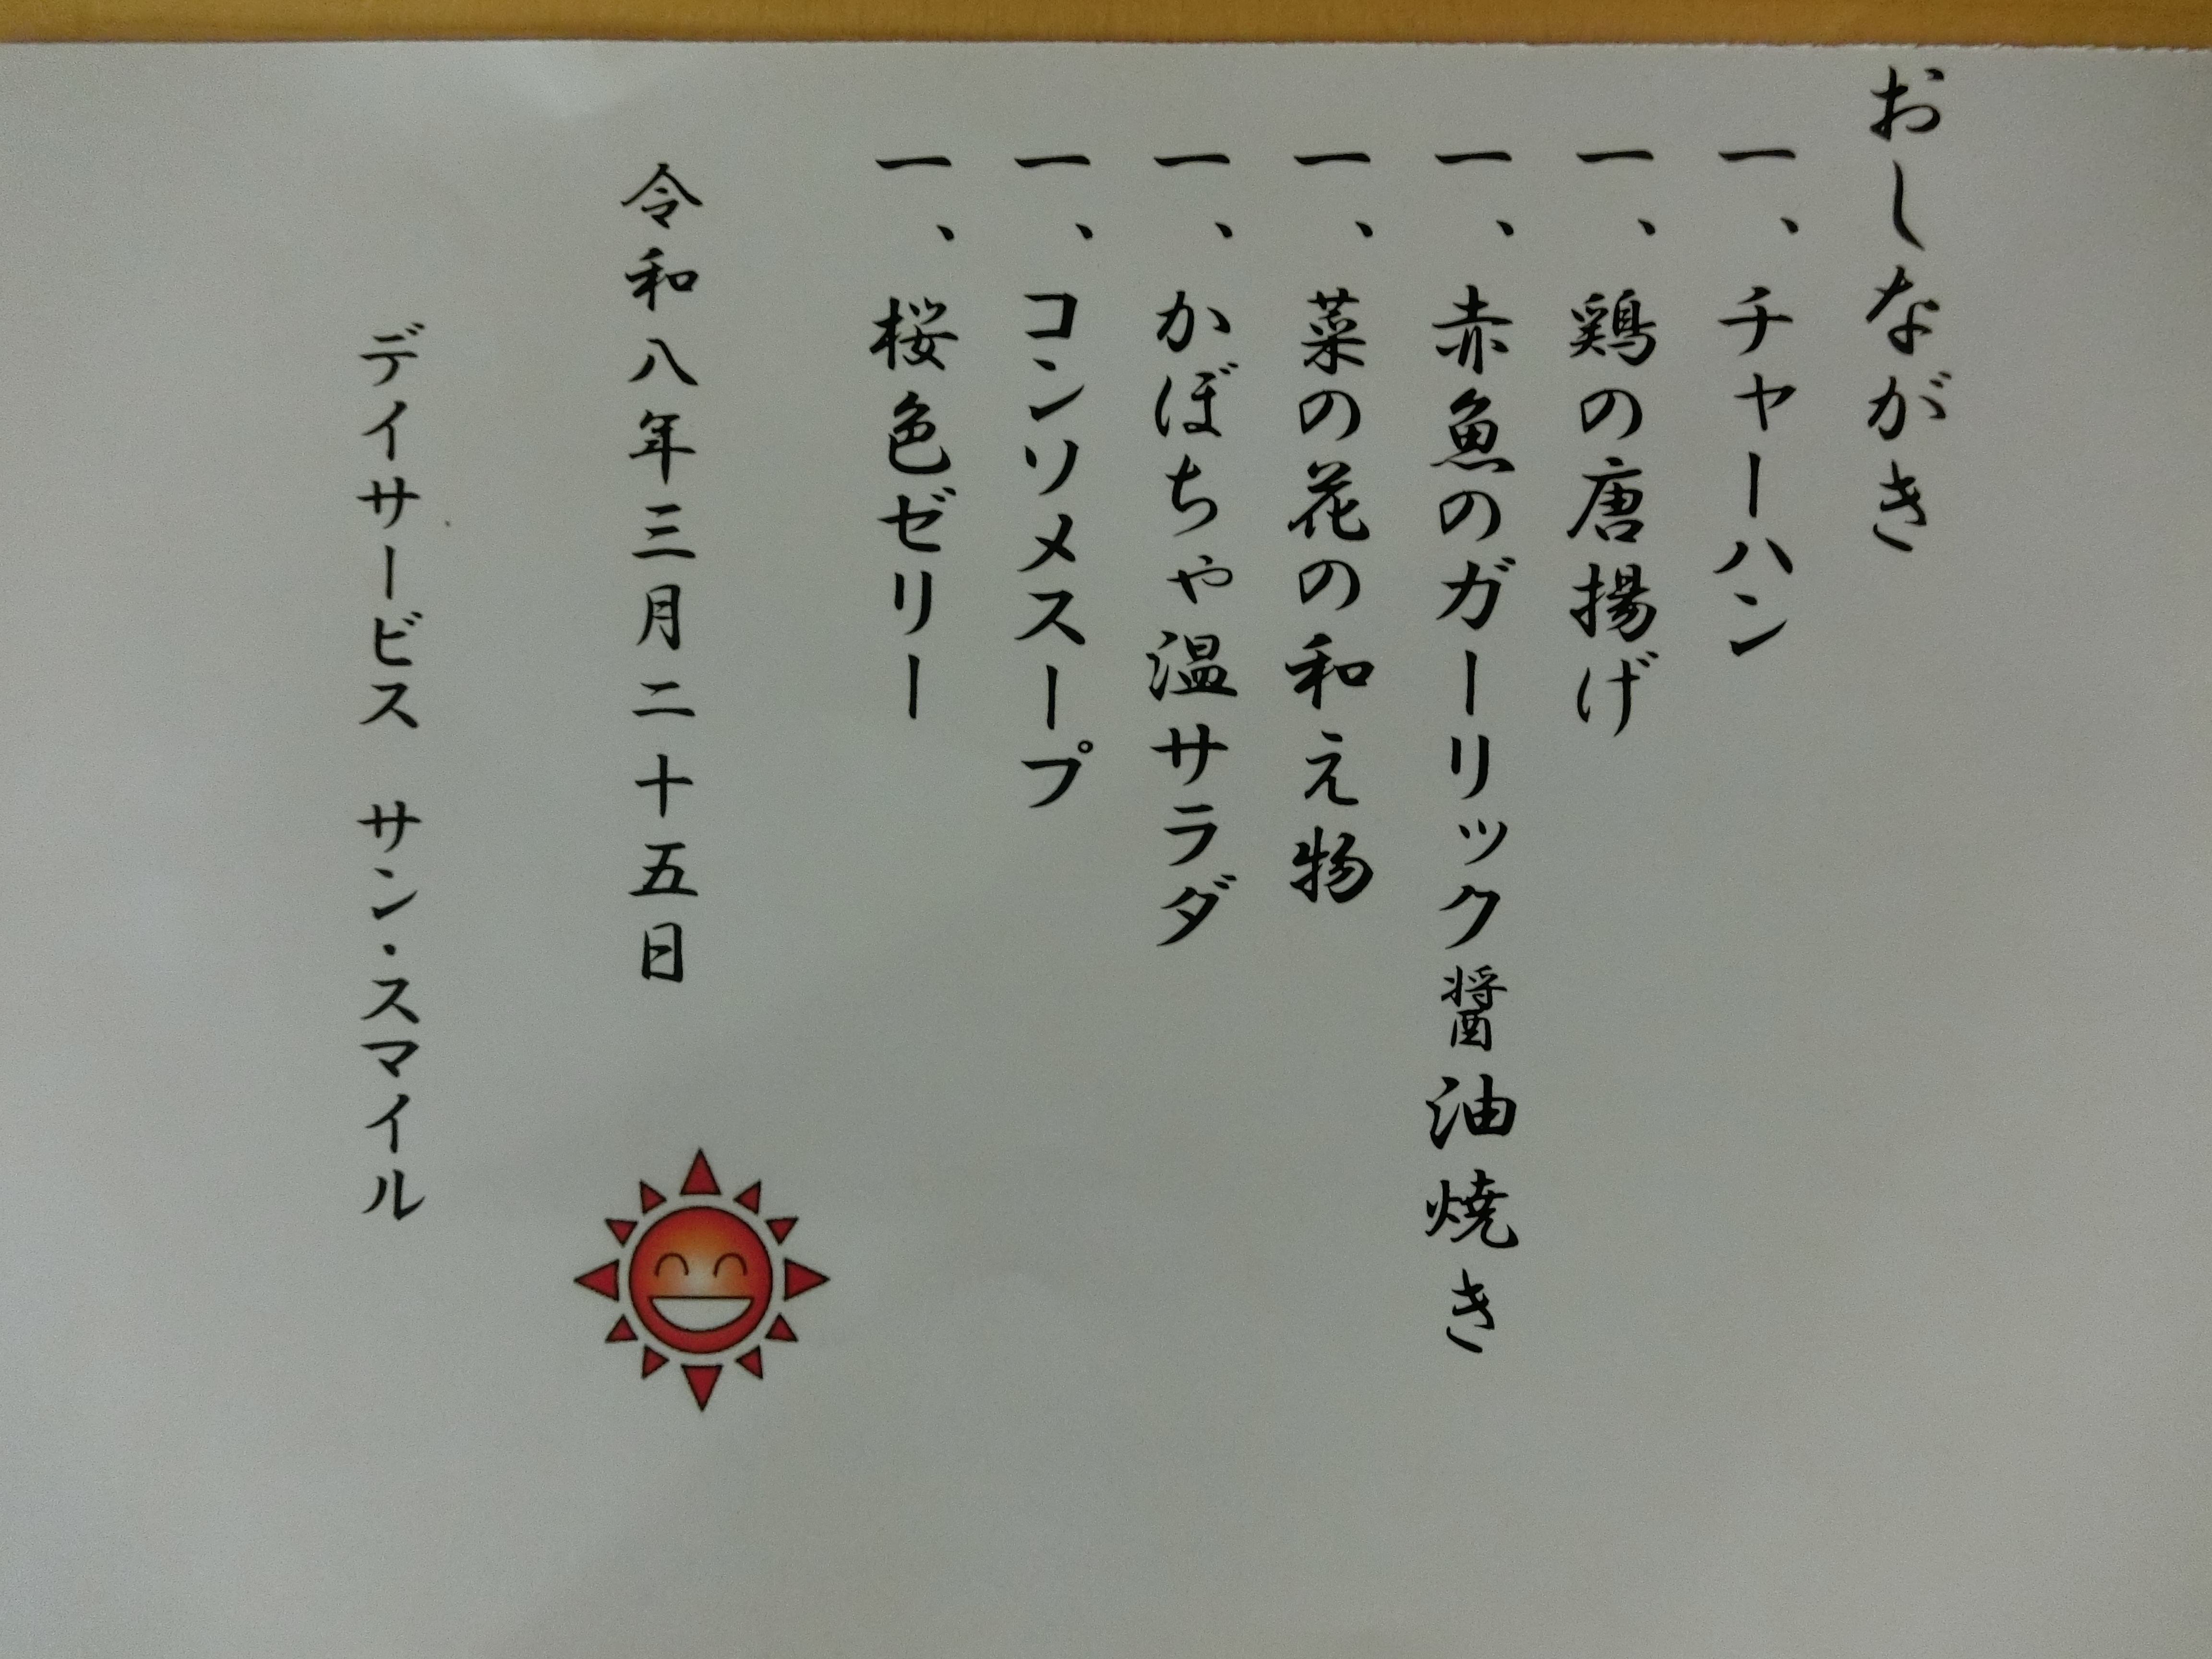 おしながき
一、チャーハン
一、鶏の唐揚げ
一、赤魚のガーリック醤油焼き
一、菜の花の和え物
一、かぼちゃ温サラダ
一、コンソメスープ
一、桜色ゼリー
令和八年三月二十五日
デイサービス　サン・スマイル